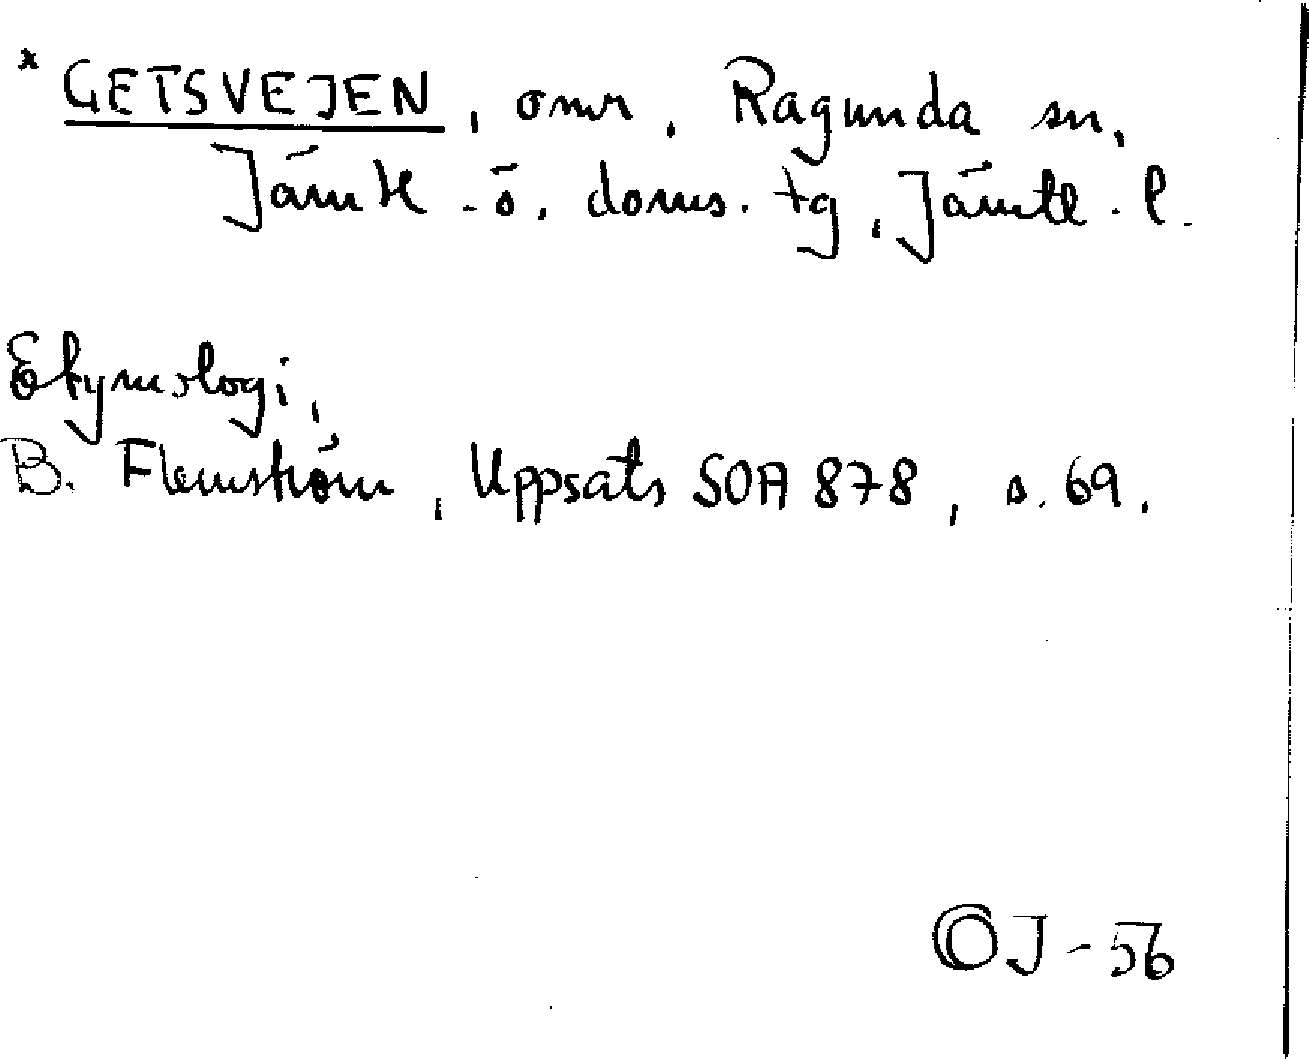 * GETSVEJEN, omr, Ragunda sn,
Jämtl. ö. doms. tg, Jämtl. l.
Etymologi,
B. Flemström, Uppsats SOA 878, s. 69.
OJ-56